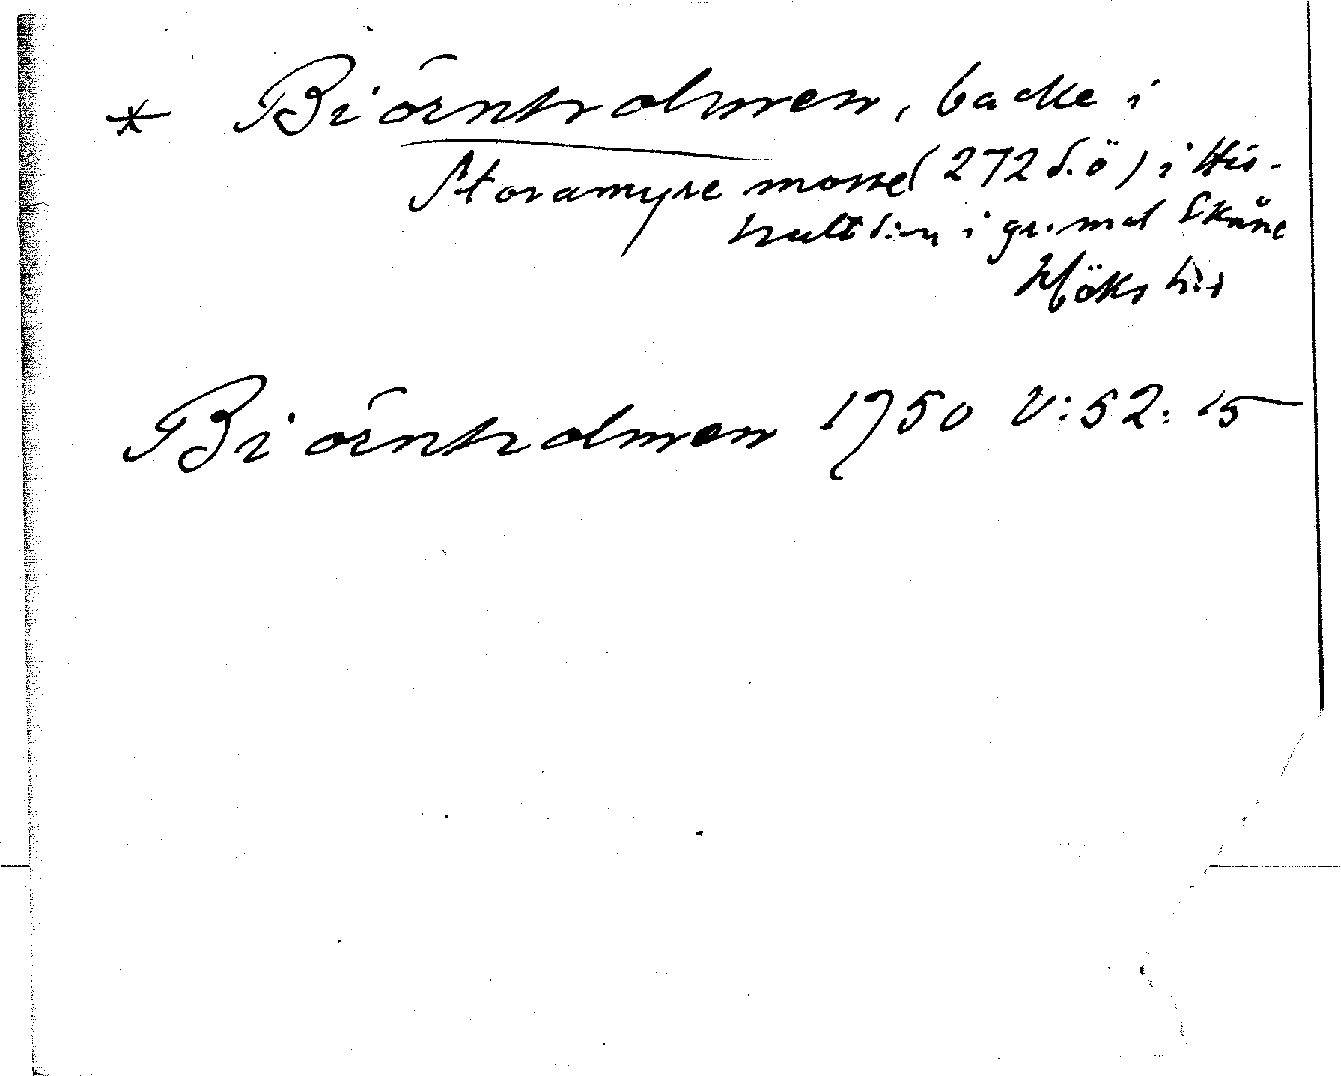 * Biörnholmen, backe i
Storamyre mosse (272 S.ö) i His-
hult s:n i gr. mot Skåne
Höks hd
Biörnholmen 1750 V:52:15